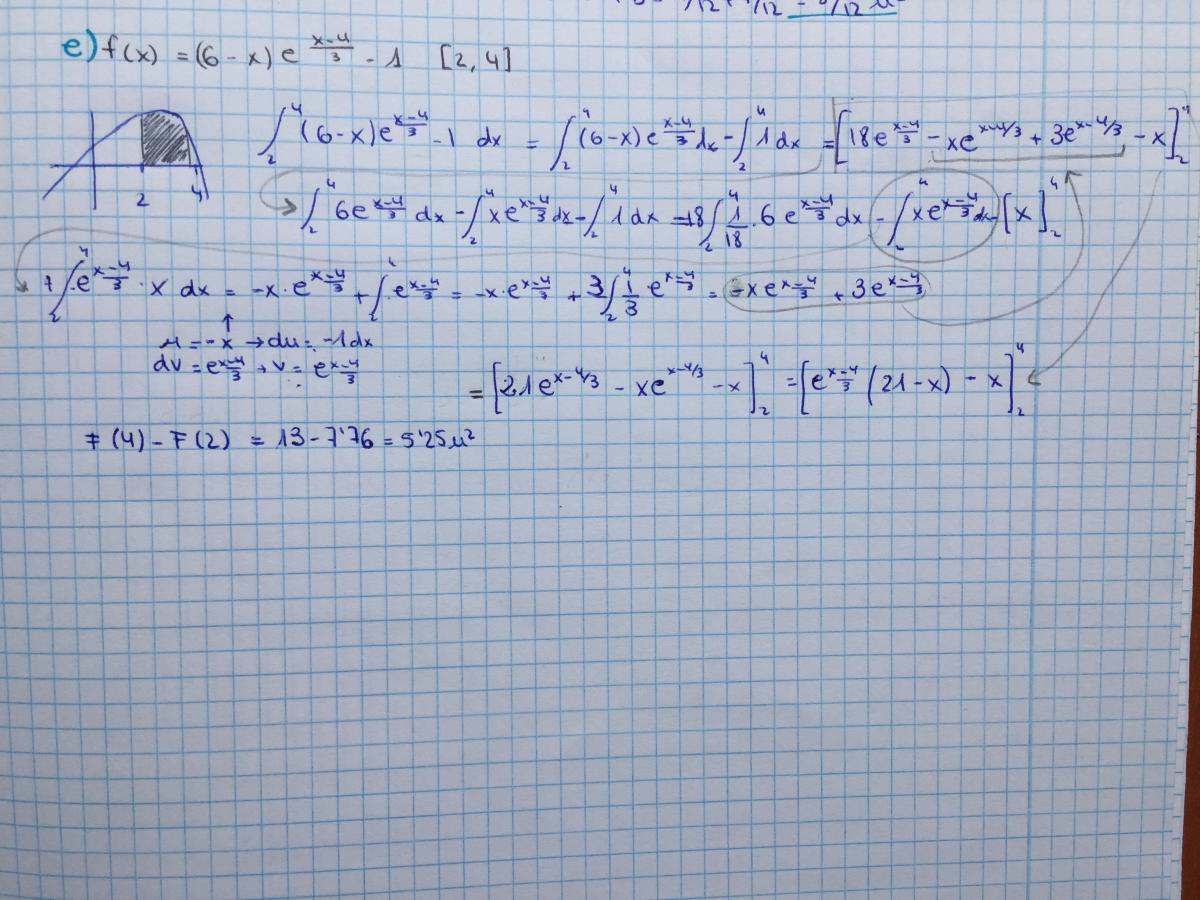 e) f(x) = (6-x) e^{\frac{x-4}{3}} - 1 [2, 4]
∫_2^4 (6-x)e^{\frac{x-4}{3}} - 1 dx = ∫_2^4 (6-x)e^{\frac{x-4}{3}} dx - ∫_2^4 1 dx = [18e^{\frac{x-4}{3}} - xe^{x-4/3} + 3e^{x-4/3} - x]_2^4
2 4
∫_2^4 6e^{\frac{x-4}{3}} dx - ∫_2^4 xe^{\frac{x-4}{3}} dx - ∫_2^4 1 dx = 18 ∫_2^4 \frac{1}{18} · 6 e^{\frac{x-4}{3}} dx - ∫_2^4 xe^{\frac{x-4}{3}} dx - [x]_2^4
+ ∫_2^4 · e^{\frac{x-4}{3}} · x dx = -x · e^{\frac{x-4}{3}} + ∫_2^4 · e^{\frac{x-4}{3}} = -x · e^{\frac{x-4}{3}} + 3 ∫_2^4 \frac{1}{3} · e^{\frac{x-4}{3}} = -xe^{\frac{x-4}{3}} + 3e^{\frac{x-4}{3}}
μ = -x → du = -1dx
dv = e^{\frac{x-4}{3}} → v = e^{\frac{x-4}{3}}
= [21e^{x-4/3} - xe^{x-4/3} - x]_2^4 = [e^{\frac{x-4}{3}} (21-x) - x]_2^4
F(4) - F(2) = 13 - 7'76 = 5'25 u²